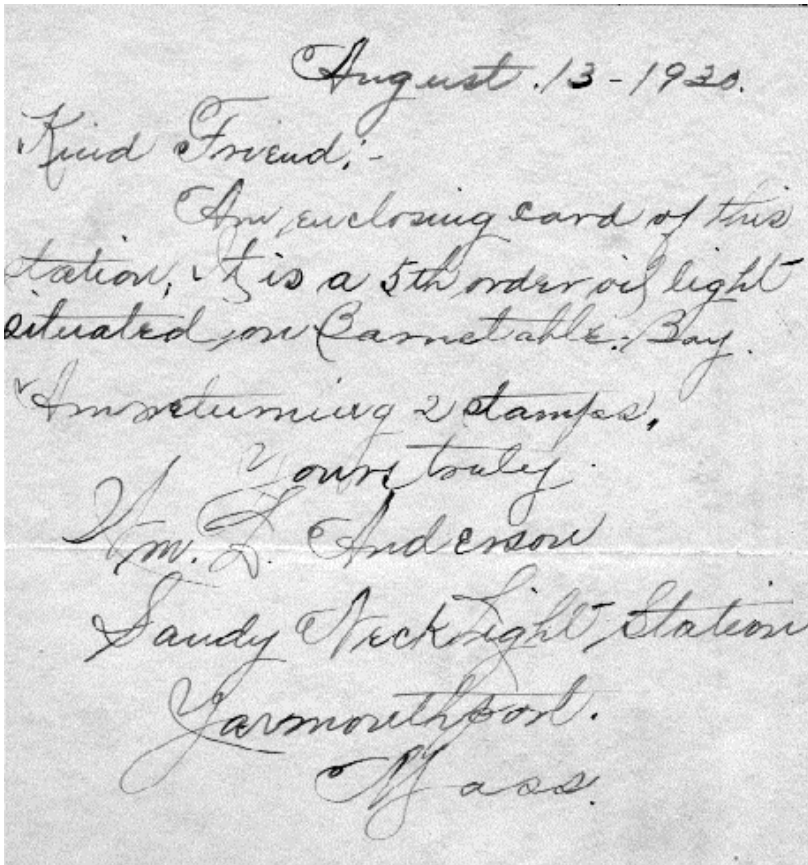 August. 13-1930.
Kind Friend:-
Am enclosing card of this
station, It is a 5th order oil light
situated on Barnstable-Bay.
Am returning 2 stamps.
Yours truly.
Wm. L. Anderson
Sandy Neck Light Station
Yarmouthport.
Mass.